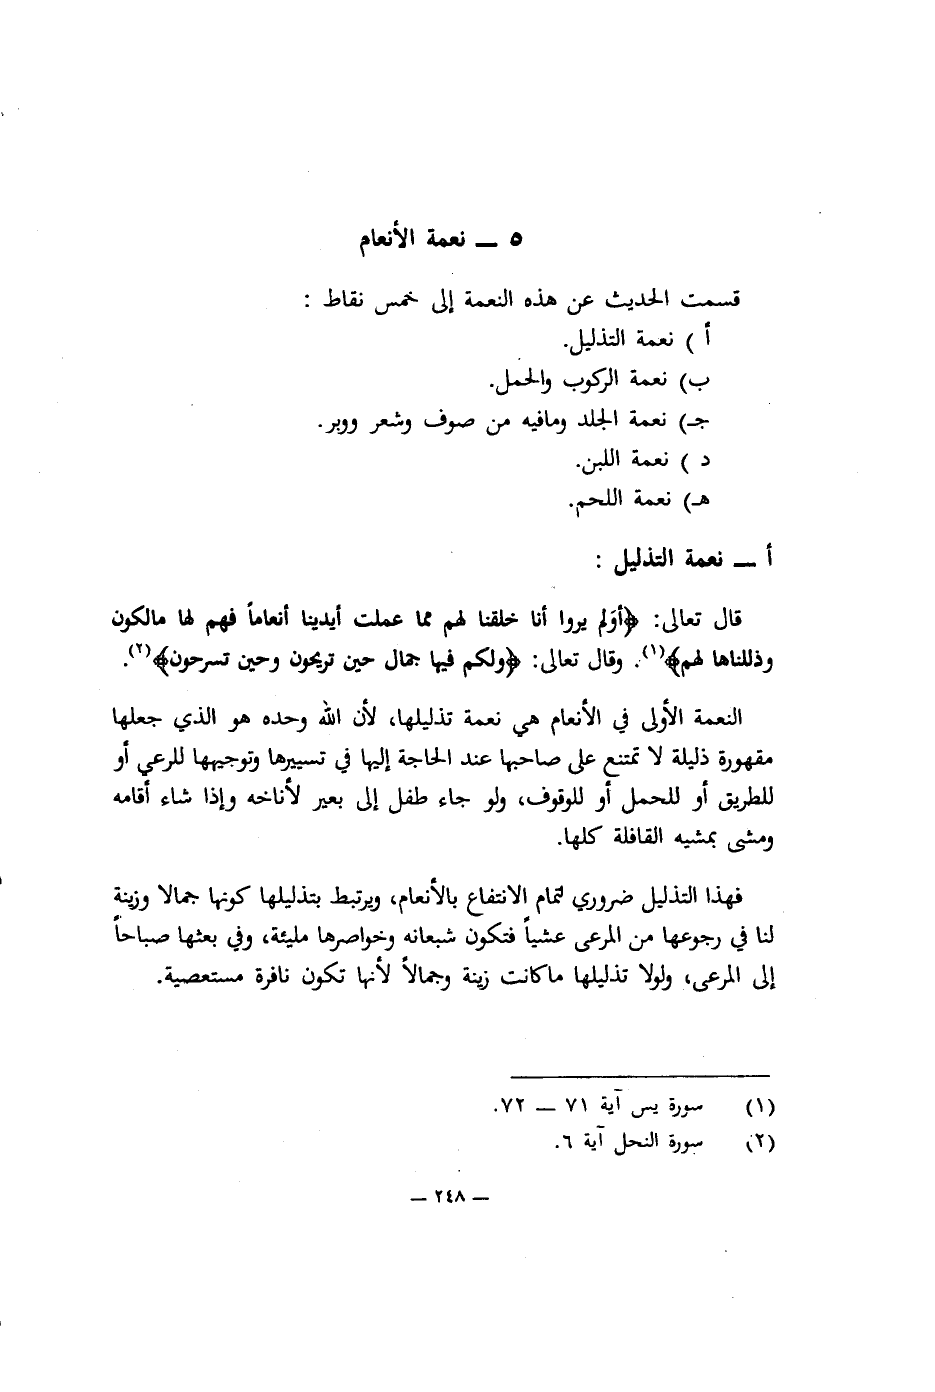 ٥ — نعمة الأنعام
قسمت الحديث عن هذه النعمة إلى خمس نقاط :
أ ) نعمة التذليل.
ب) نعمة الركوب والحمل.
جـ) نعمة الجلد ومافيه من صوف وشعر ووبر.
د ) نعمة اللبن.
هـ) نعمة اللحم.
أ — نعمة التذليل :
قال تعالى: ﴿أوَلم يروا أنا خلقنا لهم مما عملت أيدينا أنعاماً فهم لها مالكون
وذللناها لهم﴾(١). وقال تعالى: ﴿ولكم فيها جمال حين تريحون وحين تسرحون﴾(٢).
النعمة الأولى في الأنعام هي نعمة تذليلها، لأن الله وحده هو الذي جعلها
مقهورة ذليلة لا تمتنع على صاحبها عند الحاجة إليها في تسييرها وتوجيهها للرعي أو
للطريق أو للحمل أو للوقوف، ولو جاء طفل إلى بعير لأناخه وإذا شاء أقامه
ومشى بمشيه القافلة كلها.
فهذا التذليل ضروري لتمام الانتفاع بالأنعام، ويرتبط بتذليلها كونها جمالا وزينة
لنا في رجوعها من المرعى عشياً فتكون شبعانه وخواصرها مليئة، وفي بعثها صباحاً
إلى المرعى، ولولا تذليلها ماكانت زينة وجمالاً لأنها تكون نافرة مستعصية.
(١) سورة يس آية ٧١ — ٧٢.
(٢) سورة النحل آية ٦.
— ٢٤٨ —